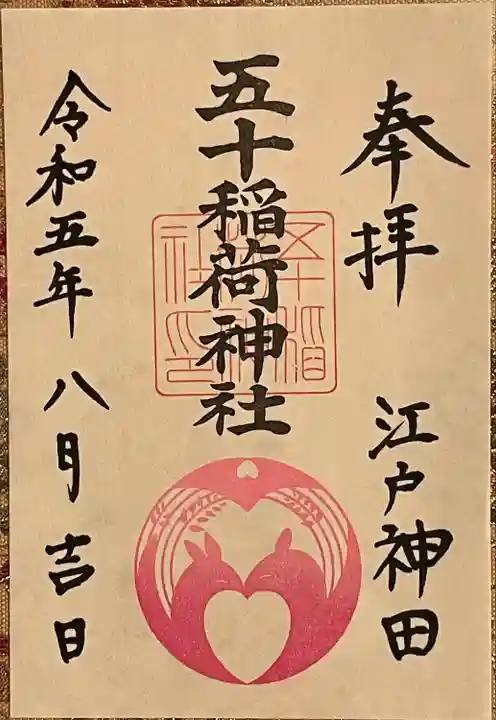 奉拝
江戸神田
五十稲荷神社
令和五年八月吉日